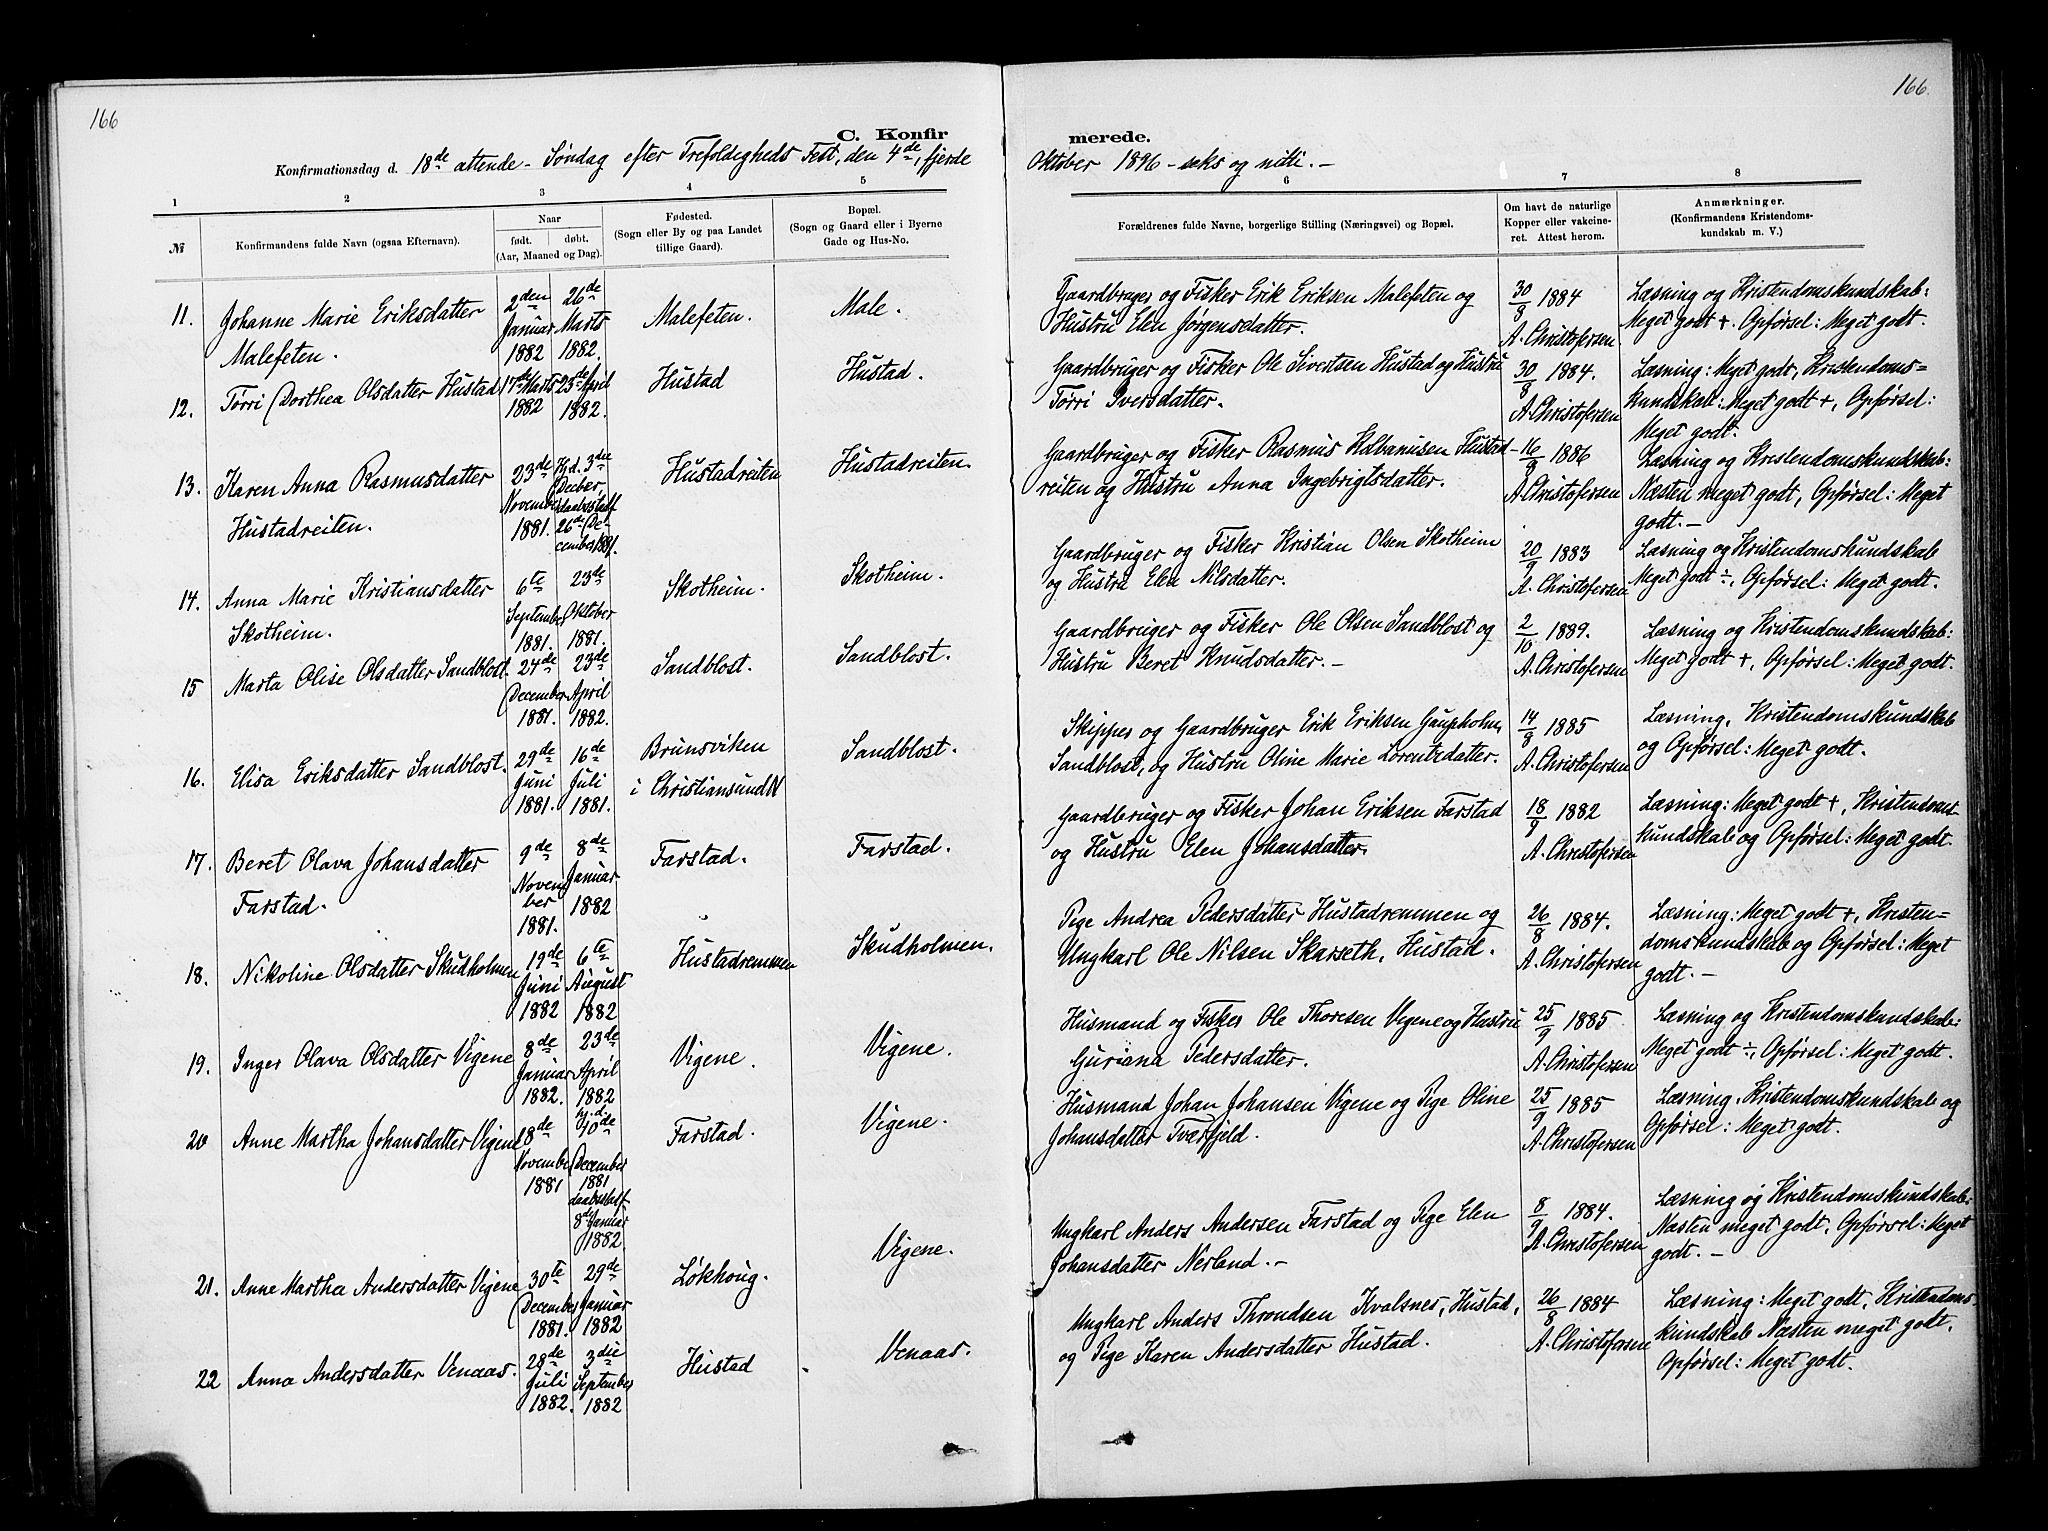 166
166.
C. Konfir
merede.
Konfirmationsdag d. 18de attende - Søndag efter Trefoldigheds Fest, den 4de, fjerde
Oktober 1896 - seks og nitti. -
1 2 3 4 5
6 7 8
№
Konfirmandens fulde Navn (ogsaa Efternavn).
Naar
født. døbt.
(Aar, Maaned og Dag).
Fødested.
(Sogn eller By og paa Landet
tillige Gaard).
Bopæl.
(Sogn og Gaard eller i Byerne
Gade og Hus-No.
Forældrenes fulde Navne, borgerlige Stilling (Næringsvei) og Bopæl.
Om havt de naturlige
Kopper eller vakcine-
ret. Attest herom.
Anmærkninger.
(Konfirmandens Kristendoms-
kundskab m. V.)
11.
Johanne Marie Eriksdatter
Malefeten.
2den
Januar
1882
26de
Marts
1882.
Malefeten.
Male.
Gaardbruger og Fisker Erik Eriksen Malefeten og
Hustru Elen Jørgensdatter.
30/8 1884
A. Christofersen
Læsning og Kristendomskundskab:
Meget godt +. Opførsel: Meget godt.
12.
Tørri Dorthea Olsdatter Hustad
17de Marts
1882
23de April
1882.
Hustad
Hustad.
Gaardbruger og Fisker Ole Sivertsen Hustad og Hustru
Tørri Iversdatter.
30/8 1884.
A. Christofersen
Læsning: Meget godt, Kristendoms=
kundskab: Meget godt +, Opførsel:
Meget godt.
13.
Karen Anna Rasmusdatter
Hustadreiten.
23de
November
1881.
Hjd. 3die
Decber,
daabsstadf
26de De-
cember 1881.
Hustadreiten
Hustadreiten.
Gaardbruger og Fisker Rasmus Hustad-
reiten og Hustru Anna Ingebrigtsdatter.
16/9 1886
A. Christofersen
Læsning og Kristendomskundskab:
Næsten meget godt, Opførsel: Meget
godt. -
14.
Anna Marie Kristiansdatter
Skotheim.
6te
September
1881.
23de
Oktober
1881.
Skotheim.
Skotheim.
Gaardbruger og Fisker Kristian Olsen Skotheim
og Hustru Elen Nilsdatter.
20/9 1883
A. Christofersen
Læsning og Kristendomskundskab
Meget godt ÷, Opførsel: Meget godt.
15
Marta Olise Olsdatter Sandblost.
24de
December
1881.
23de
April
1882.
Sandblost.
Sandblost.
Gaardbruger og Fisker Ole Olsen Sandblost og
Hustru Beret Knudsdatter. -
2/10 1889.
A. Christofersen
Læsning og Kristendomskundskab:
Meget godt +, Opførsel: Meget godt.
16.
Elisa Eriksdatter Sandblost.
29de
Juni
1881.
16de
Juli
1881.
Brunsviken
i Christiansund N
Sandblost.
Skipper og Gaardbruger Erik Eriksen Gaupholm,
Sandblost, og Hustru Oline Marie Lorentzdatter.
14/8 1885
A. Christofersen
Læsning, Kristendomskundskab
og Opførsel: Meget godt.
17.
Beret Olava Johansdatter
Farstad.
9de
Novem
ber
1881.
8de
Januar
1882
Farstad.
Farstad.
Gaardbruger og Fisker Johan Eriksen Farstad
og Hustru Elen Johansdatter.
18/9 1882
A. Christofersen
Læsning: Meget godt +, Kristendoms
kundskab og Opførsel: Meget godt.
18.
Nikoline Olsdatter Skudholmen
19de
Juni
1882
6te
August
1882
Hustadremmen
Skudholmen.
Pige Andrea Pedersdatter Hustadremmen og
Ungkarl Ole Nilsen Skarseth, Hustad.
26/8 1884.
A. Christofersen
Læsning: Meget godt +, Kristen=
domskundskab og Opførsel: Meget
godt. -
19.
Inger Olava Olsdatter Vigene
8de
Januar
1882.
23de
April
1882
Vigene.
Vigene.
Husmand og Fisker Ole Thoresen Vigene og Hustru
Guriana Pedersdatter.
25/9 1885
A. Christofersen
Læsning og Kristendomskundskab:
Meget godt ÷, Opførsel: Meget godt.
20
Anne Martha Johansdatter Vigene
18de
November
1881
hj. d.
10de
December
1881
daabsstadf
8de Januar
1882.
Farstad.
Vigene.
Husmand Johan Johansen Vigene og Pige Oline
Johansdatter Tværfjeld.
25/9 1885
A. Christofersen
Læsning, Kristendomskundskab og
Opførsel: Meget godt.
21.
Anne Martha Andersdatter Vigene
30te
December
1881.
29de
Januar
1882
Løkhoug.
Vigene.
Ungkarl Anders Andersen Farstad og Pige Elen
Johansdatter Nerland. -
8/9 1884.
A. Christofersen
Læsning og Kristendomskundskab:
Næsten meget godt, Opførsel: Meget
godt. -
22
Anna Andersdatter Venaas.
28de
Juli
1882.
3die
September
1882
Hustad
Venaas.
Ungkarl Anders Throndsen Kvalsnes, Hustad,
og Pige Karen Andersdatter Hustad.
26/8 1884
A. Christofersen
Læsning: Meget godt, Kristendoms-
kundskab Næsten meget godt,
Opførsel: Meget godt.